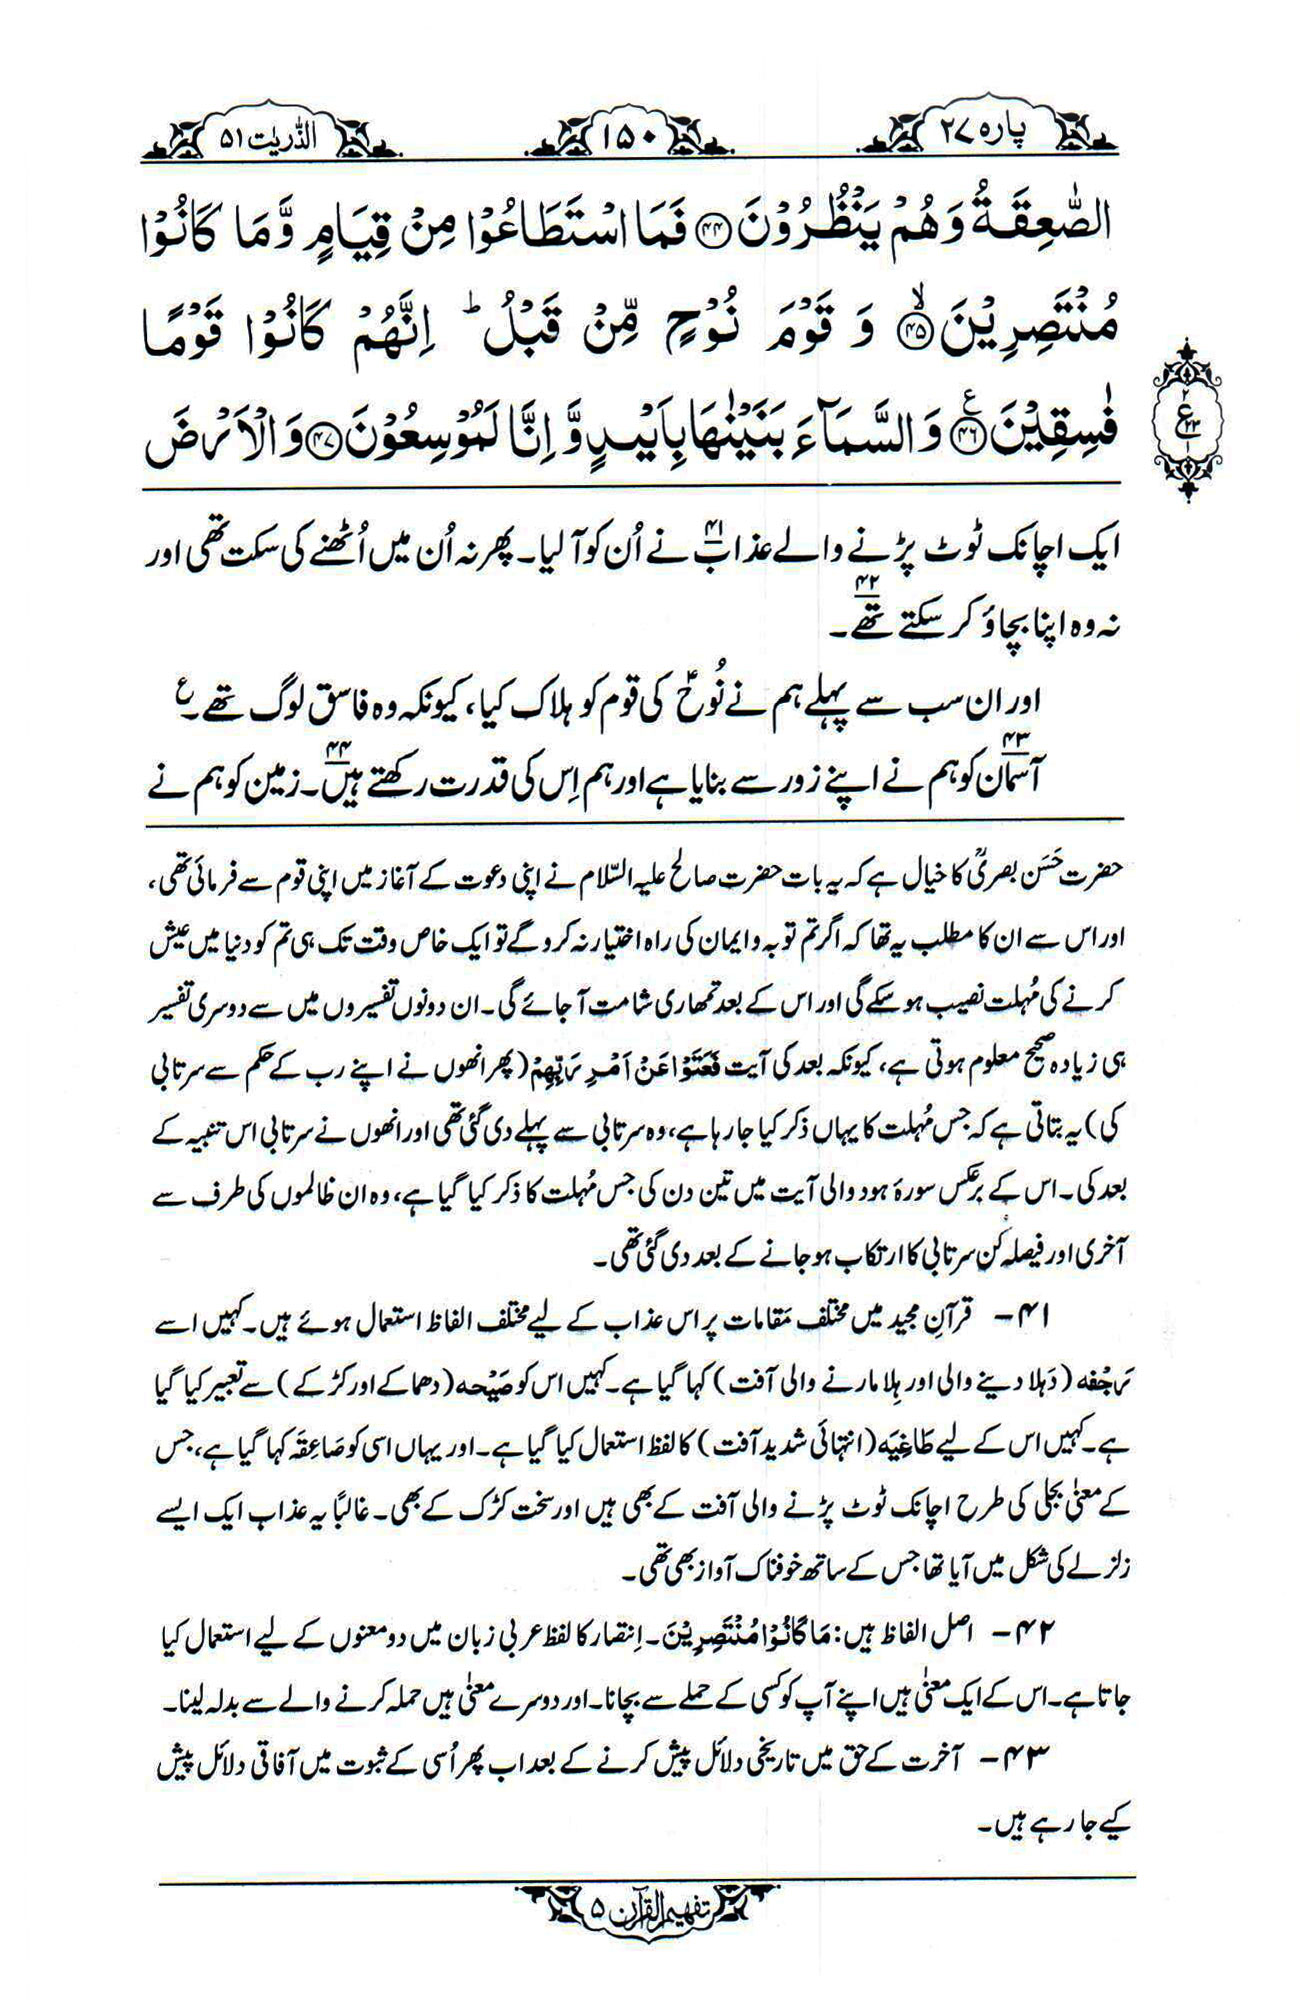 پارہ ۲۷
۱۵۰
الذّٰریٰت ۵۱
الصّٰعِقَةُ وَهُمْ يَنْظُرُوْنَ ۝۴۴ فَمَا اسْتَطَاعُوْا مِنْ قِيَامٍ وَّمَا كَانُوْا
مُنْتَصِرِيْنَ ۝۴۵ۙ وَ قَوْمَ نُوْحٍ مِّنْ قَبْلُ ؕ اِنَّهُمْ كَانُوْا قَوْمًا
فٰسِقِيْنَ ۝۴۶ع وَالسَّمَآءَ بَنَيْنٰهَا بِاَيْىدٍ وَّاِنَّا لَمُوْسِعُوْنَ ۝۴۷ وَالْاَرْضَ
ایک اچانک ٹوٹ پڑنے والے عذاب۴۱ نے اُن کو آ لیا۔ پھر نہ اُن میں اُٹھنے کی سکت تھی اور
نہ وہ اپنا بچاؤ کر سکتے تھے۴۲۔
اور ان سب سے پہلے ہم نے نُوحؑ کی قوم کو ہلاک کیا، کیونکہ وہ فاسق لوگ تھے۔ ع
آسمان۴۳ کو ہم نے اپنے زور سے بنایا ہے اور ہم اِس کی قدرت رکھتے ہیں۴۴۔ زمین کو ہم نے
حضرت حَسَن بصریؒ کا خیال ہے کہ یہ بات حضرت صالح علیہ السّلام نے اپنی دعوت کے آغاز میں اپنی قوم سے فرمائی تھی،
اور اس سے ان کا مطلب یہ تھا کہ اگر تم توبہ و ایمان کی راہ اختیار نہ کرو گے تو ایک خاص وقت تک ہی تم کو دنیا میں عیش
کرنے کی مُہلت نصیب ہو سکے گی اور اس کے بعد تمھاری شامت آ جائے گی۔ ان دونوں تفسیروں میں سے دوسری تفسیر
ہی زیادہ صحیح معلوم ہوتی ہے، کیونکہ بعد کی آیت فَعَتَوْا عَنْ اَمْرِ رَبِّهِمْ (پھر انھوں نے اپنے رب کے حکم سے سرتابی
کی) یہ بتاتی ہے کہ جس مُہلت کا یہاں ذکر کیا جا رہا ہے، وہ سرتابی سے پہلے دی گئی تھی اور انھوں نے سرتابی اس تنبیہ کے
بعد کی۔ اس کے برعکس سورۂ ہود والی آیت میں تین دن کی جس مُہلت کا ذکر کیا گیا ہے، وہ ان ظالموں کی طرف سے
آخری اور فیصلہ کُن سرتابی کا ارتکاب ہو جانے کے بعد دی گئی تھی۔
۴۱- قرآنِ مجید میں مختلف مَقامات پر اس عذاب کے لیے مختلف الفاظ استعمال ہوئے ہیں۔ کہیں اسے
رَجْفه (دَہلا دینے والی اور ہِلا مارنے والی آفت) کہا گیا ہے۔ کہیں اس کو صَيْحه (دھماکے اور کڑکے) سے تعبیر کیا گیا
ہے۔ کہیں اس کے لیے طَاغِيَه (انتہائی شدید آفت) کا لفظ استعمال کیا گیا ہے۔ اور یہاں اسی کو صَاعِقَه کہا گیا ہے، جس
کے معنٰی بجلی کی طرح اچانک ٹوٹ پڑنے والی آفت کے بھی ہیں اور سخت کڑک کے بھی۔ غالبًا یہ عذاب ایک ایسے
زلزلے کی شکل میں آیا تھا جس کے ساتھ خوفناک آواز بھی تھی۔
۴۲- اصل الفاظ ہیں: مَا كَانُوْا مُنْتَصِرِيْنَ۔ اِنتصار کا لفظ عربی زبان میں دو معنوں کے لیے استعمال کیا
جاتا ہے۔ اس کے ایک معنٰی ہیں اپنے آپ کو کسی کے حملے سے بچانا۔ اور دوسرے معنٰی ہیں حملہ کرنے والے سے بدلہ لینا۔
۴۳- آخرت کے حق میں تاریخی دلائل پیش کرنے کے بعد اب پھر اُسی کے ثبوت میں آفاقی دلائل پیش
کیے جا رہے ہیں۔
تفہیم القرآن ۵